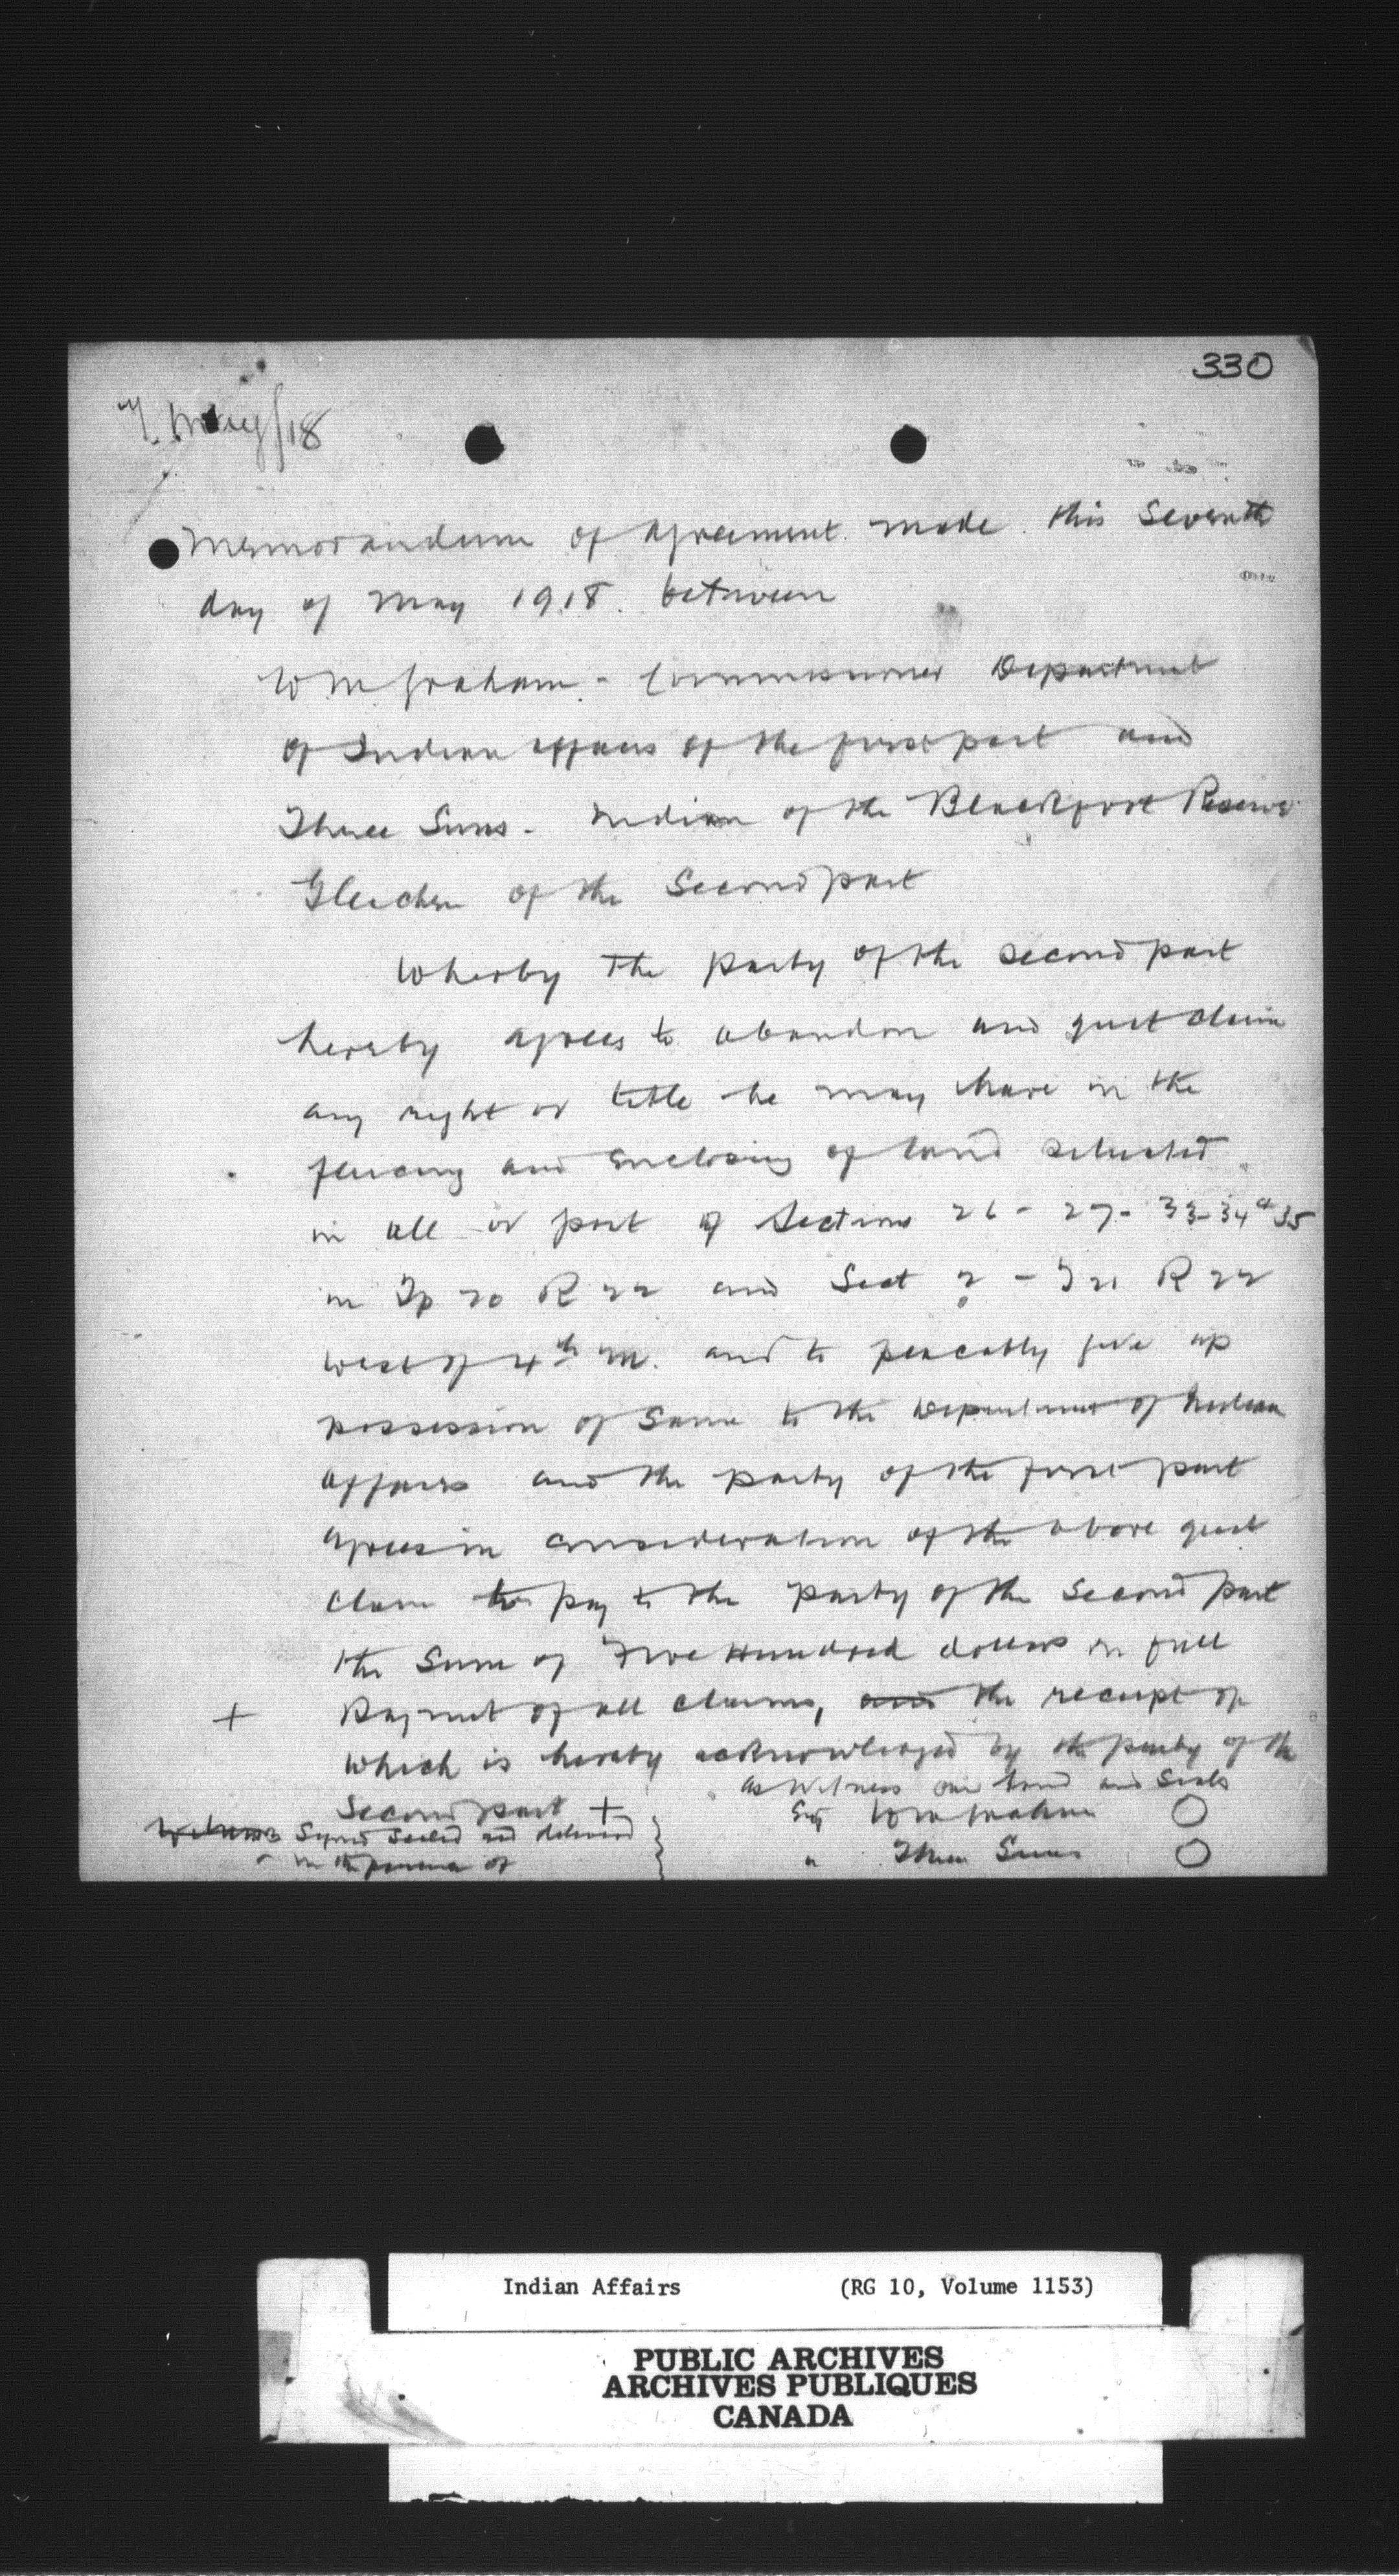 330
7 May/18
Memorandum of agreement made this Seventh
day of May 1918. between
W M Graham - Commissioner Department
of Indian affairs of the first part and
Three Suns - Indian of the Blackfoot Reserve
Gleichen of the Second part
Wherby The party of the second part
hereby agrees to abandon and quit claim
any right or title he may have in the
fencing and enclosing of land situated
in all or part of Sections 26 - 27 - 33 - 34 & 35
in Tp 20 R 22 and Sect 2 - T 21 R 22
West of 4th M. and to peacably give up
possession of Same to the Department of Indian
affairs and the party of the first part
agrees in consideration of the above quit
claim to pay to the party of the Second part
the Sum of Five Hundred dollars in full
+ Payment of all claims, and the receipt of
which is hereby acknowledged by the party of the
Second part +
as Witness our hand and Seals
Sig W M Graham
" Three Suns
Witness Signed Sealed and delivered
in the presence of
Indian Affairs (RG 10, Volume 1153)
PUBLIC ARCHIVES
ARCHIVES PUBLIQUES
CANADA